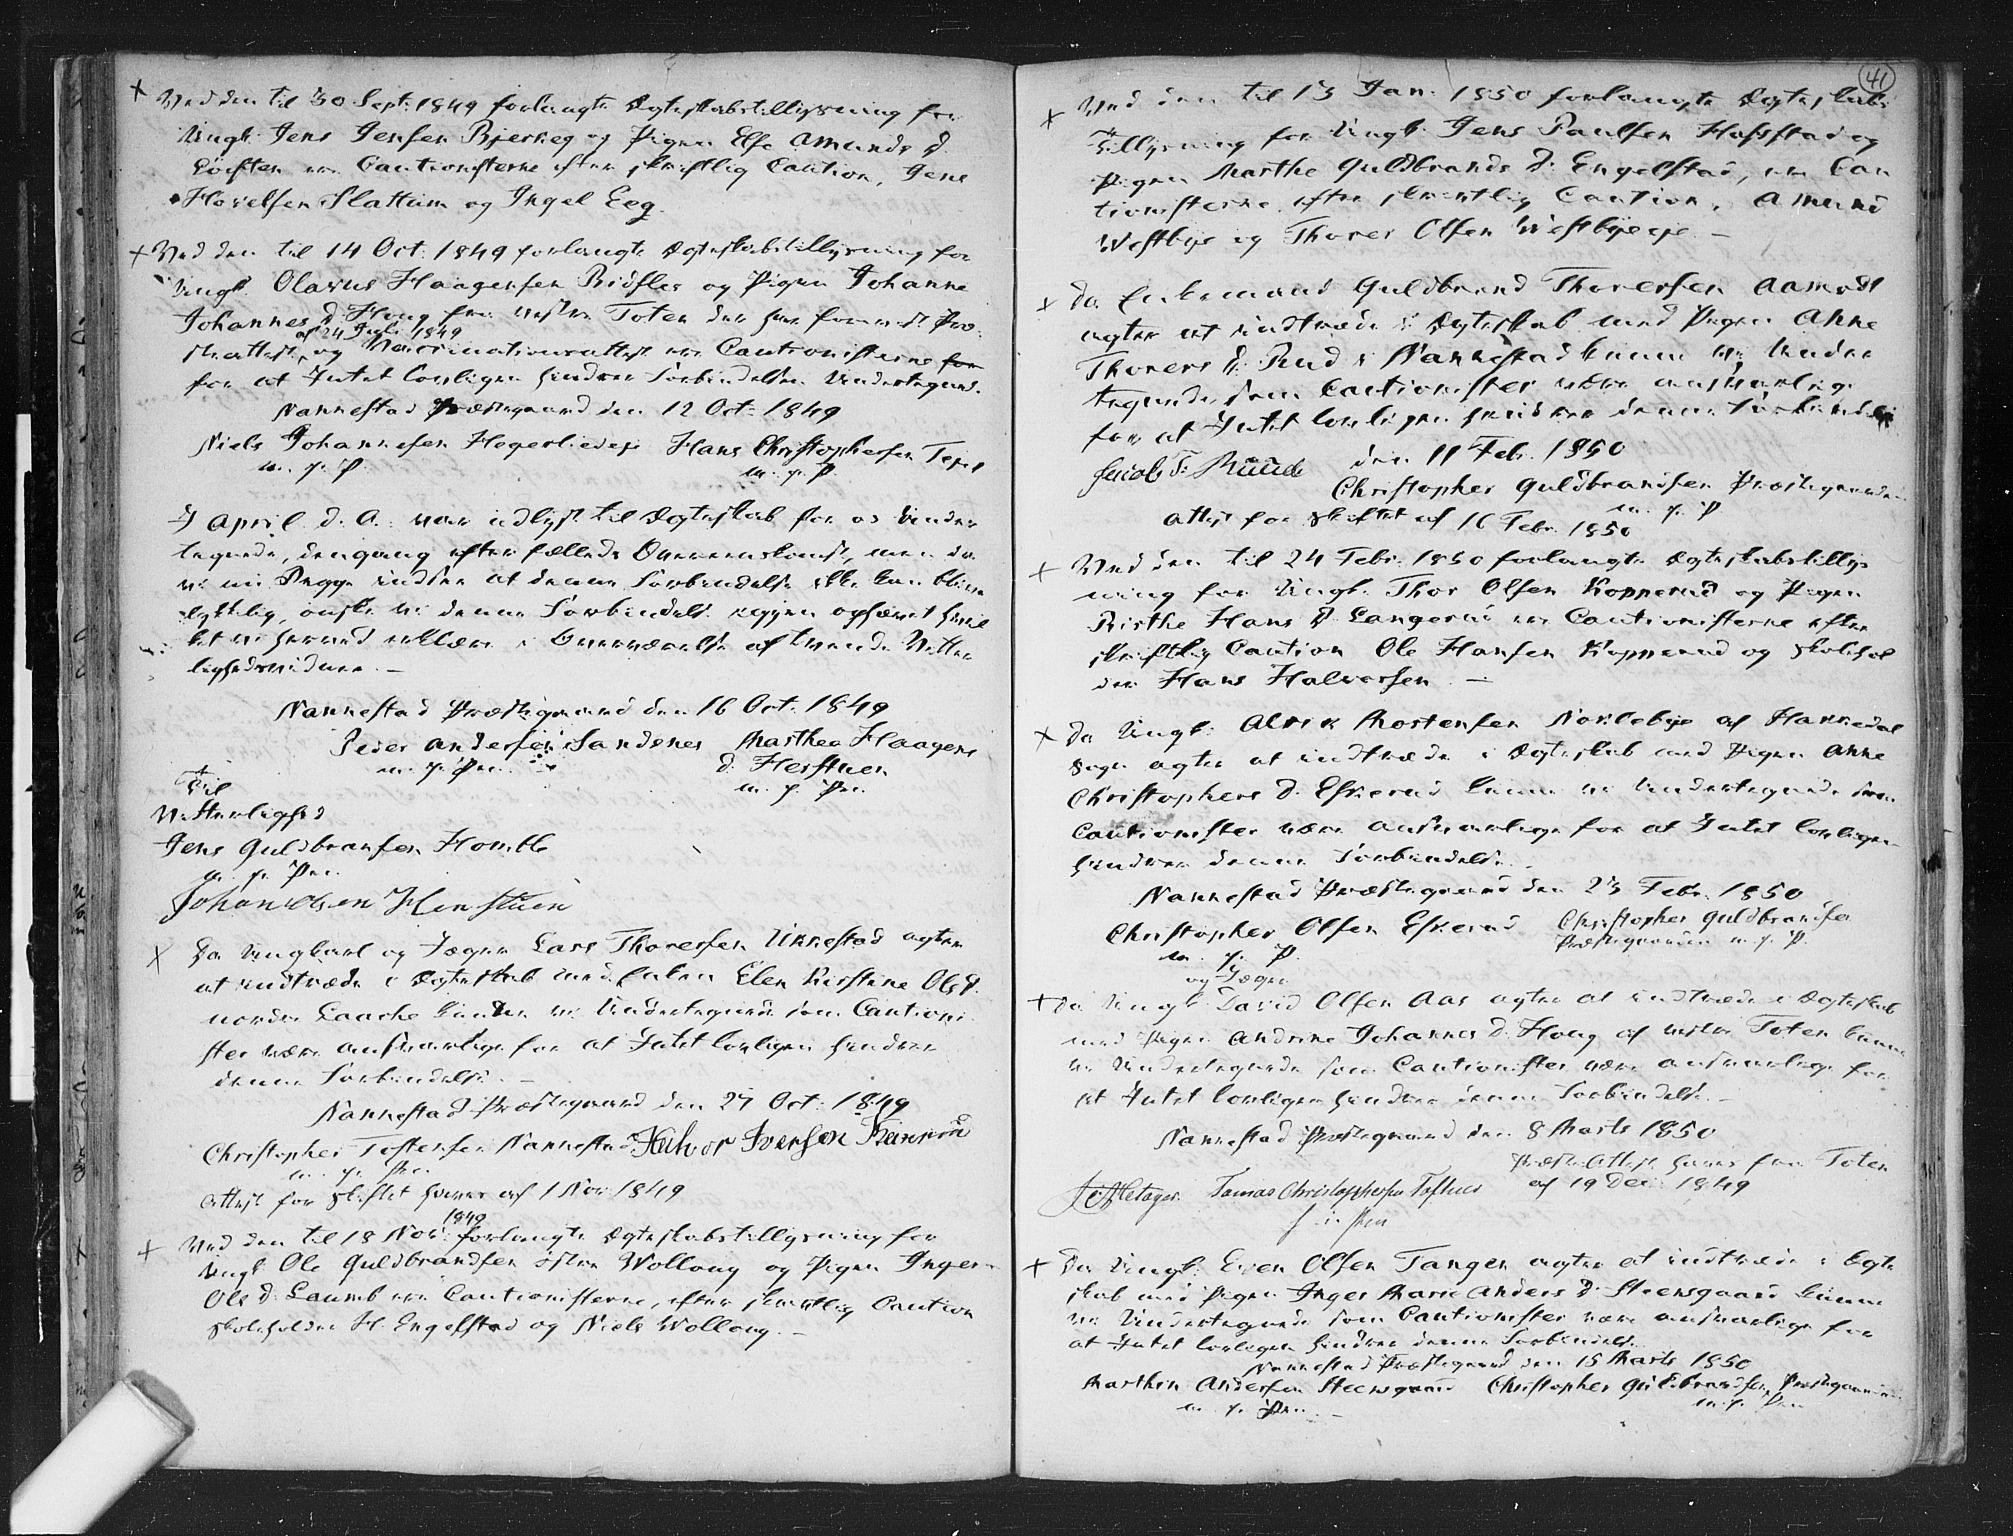 + Ved den til 30 Sept: 1849 forlangte Ægteskabstillysning for
Ungk: Jens Jensen Bjerkeg og Pigen Else Amunds D.
Løvften ere Cautionisterne efter skriftlig Caution, Jens
Hovelsen Slattum og Ingel Eeg.
+ Ved den til 14 Oct: 1849 forlangte Ægteskabstillysning for
Ungk: Olavus Haagensen Risfler og Pigen Johanne
Johannes D. Houg fra vestre Toten der har foreviist Præ-
af 24 Juli 1849
steattest og Vaccinationsattest ere Cautionisterne for
for at Intet lovligen hindrer Forbindelsen Undertegnede.
Nannestad Præstegaard den 12 Oct: 1849
Niels Johannesen Hogerlieeje Hans Christophersen Tejel
m. f. P. m. f. P.
I April d. A. var udlyst til Ægteskab for os Under
tegnede, dengang efter fælleds Overeenskomst, men da
vi nu Begge indsee at denne Forbindelse ikke kan blive
lykkelig, ønske vi denne Forbindelse igjen ophævet hvil
ket vi herved erklære i Overværelse af tvende Vitter
lighedsvidner. –
Nannestad Præstegaard den 16 Oct: 1849
Peder Andersen Sandsnes Marthea Haagens
m. f. Pen. D. Herstuen
m. f. Pen.
Til
Vitterlighed
Jens Guldbransen Homble
m. f. Pen.
Johan Olsen Henstuen
+ Da Ungkarl og Jæger Lars Thoresen Ukkestad agter
at indtræde i Ægteskab med Enken Elen Kirstine Ols D.
nordre Laache kunne vi Undertegnede som Cautioni-
ster være ansvarlige for at Intet lovligen hindrer
denne Forbindelse. –
Nannestad Præstegaard den 27 Oct: 1849
Christopher Tostensen Nannestad Halvor Iversen
m. f. Pen.
Attest for Skiftet haves af 1 Nov 1849
1849
+ Ved den til 18 Nov: forlangte Ægteskabstillysning for
Ungk: Ole Guldbrandsen østre Wolloug og Pigen Inger
Ols D. Laumb ere Cautionisterne, efter skriftlig Caution
Skoleholder H. Engelstad og Niels Wolloug. –
41
+ Ved den til 13 Jan: 1850 forlangte Ægteskabs
Tillysning for Ungk: Jens Paulsen Hofstad og
Pigen Marthe Guldbrands D. Engelstad, ere Cau
tionisterne efter skriftlig Caution, Amund
Westbye og Thorer Olsen Westbyeeje –
+ Da Enkemand Guldbrand Thoresen Aamodt
agter at indtræde i Ægteskab med Pigen Anne
Thorers D. Rud i Nannestad kunne vi Under
tegnede som Cautionister være ansvarlige
for at Intet lovligen hindrer denne Forbindelse
den 11 Feb. 1850
Jacob T: Ruud
Christopher Guldbrandsen Præstegaarden
m. f. P.
Attest for Skiftet af 16 Febr. 1850
+ Ved den til 24 Febr. 1850 forlangte Ægteskabstillys
ning for Ungk: Thor Olsen Kopperud og Pigen
Birthe Hans D. Langerud ere Cautionisterne efter
skriftlig Caution Ole Hansen Kopperud og Skolehol
der Hans Halvorsen –
+ Da Ungk: Alrik Mortensen Norlebye af Hakkedal
Sogn agter at indtræde i Ægteskab med Pigen Anne
Christophers D. Eskerud kunne vi Undertegnede som
Cautionister være ansvarlige for at Intet lovligen
hindrer denne Forbindelse.
Nannestad Præstegaard den 23 Febr. 1850
Christopher Olsen Eskerud Christopher Guldbrandsen
m. f. P. Præstegaarden m. f. P.
og Jæger
+ Da Ungk: David Olsen Aas agter at indtræde i Ægteskab
med Pigen Andrine Johannes D. Houg af vestre Toten kunne
vi Undertegnede som Cautionister være ansvarlige for
at Intet lovligen hindrer denne Forbindelse. –
Nannestad Præstegaard den 8 Marts 1850
Præste Attest haves fra Toten
af 19 Dec: 1849
Tomas Christophersen Toftner
+ Da Ungk: Even Olsen Tangen agter at indtræde i Ægte
skab med Pigen Inger Marie Anders D. Steensgaard kunne
vi Undertegnede som Cautionister være ansvarlige for
at Intet lovligen hindrer denne Forbindelse.
Nannestad Præstegaard den 15 Marts 1850
Marthin Andersen Steensgaard Christopher Guldbrandsen Præstegaarden
m. f. Pen. – m. f. Pen